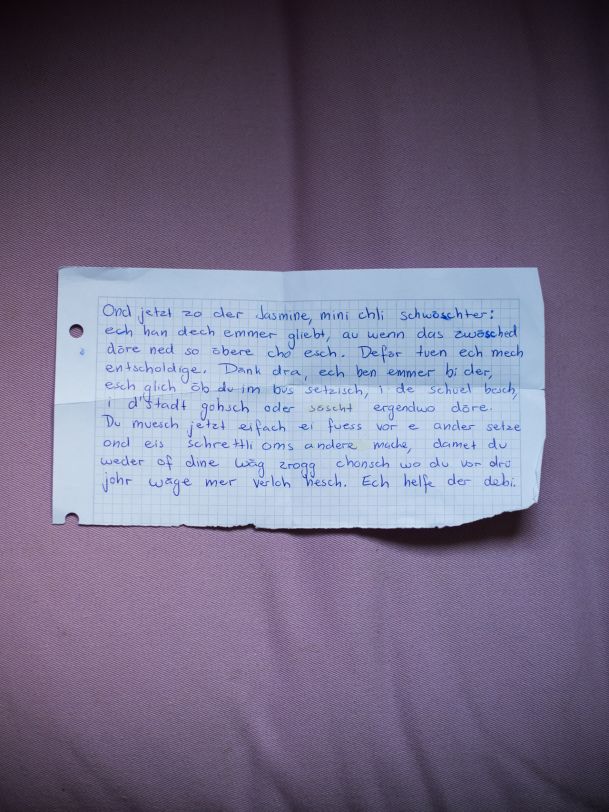 Ond jetzt zo der Jasmine, mini chli schwöschter:
ech han dech emmer gliebt, au wenn das zwösched
döre ned so öbere cho esch. Deför tuen ech mech
entscholdige. Dänk dra, ech ben emmer bi der,
esch glich öb du im bus setzisch, i de schuel besch,
i d'stadt gohsch oder söscht ergendwo döre.
Du muesch jetzt eifach ei fuess vor e ander setze
ond eis schrettli oms andere mache, damet du
weder of dine wäg zrogg chonsch wo du vor drü
johr wäge mer verloh hesch. Ech helfe der debi.